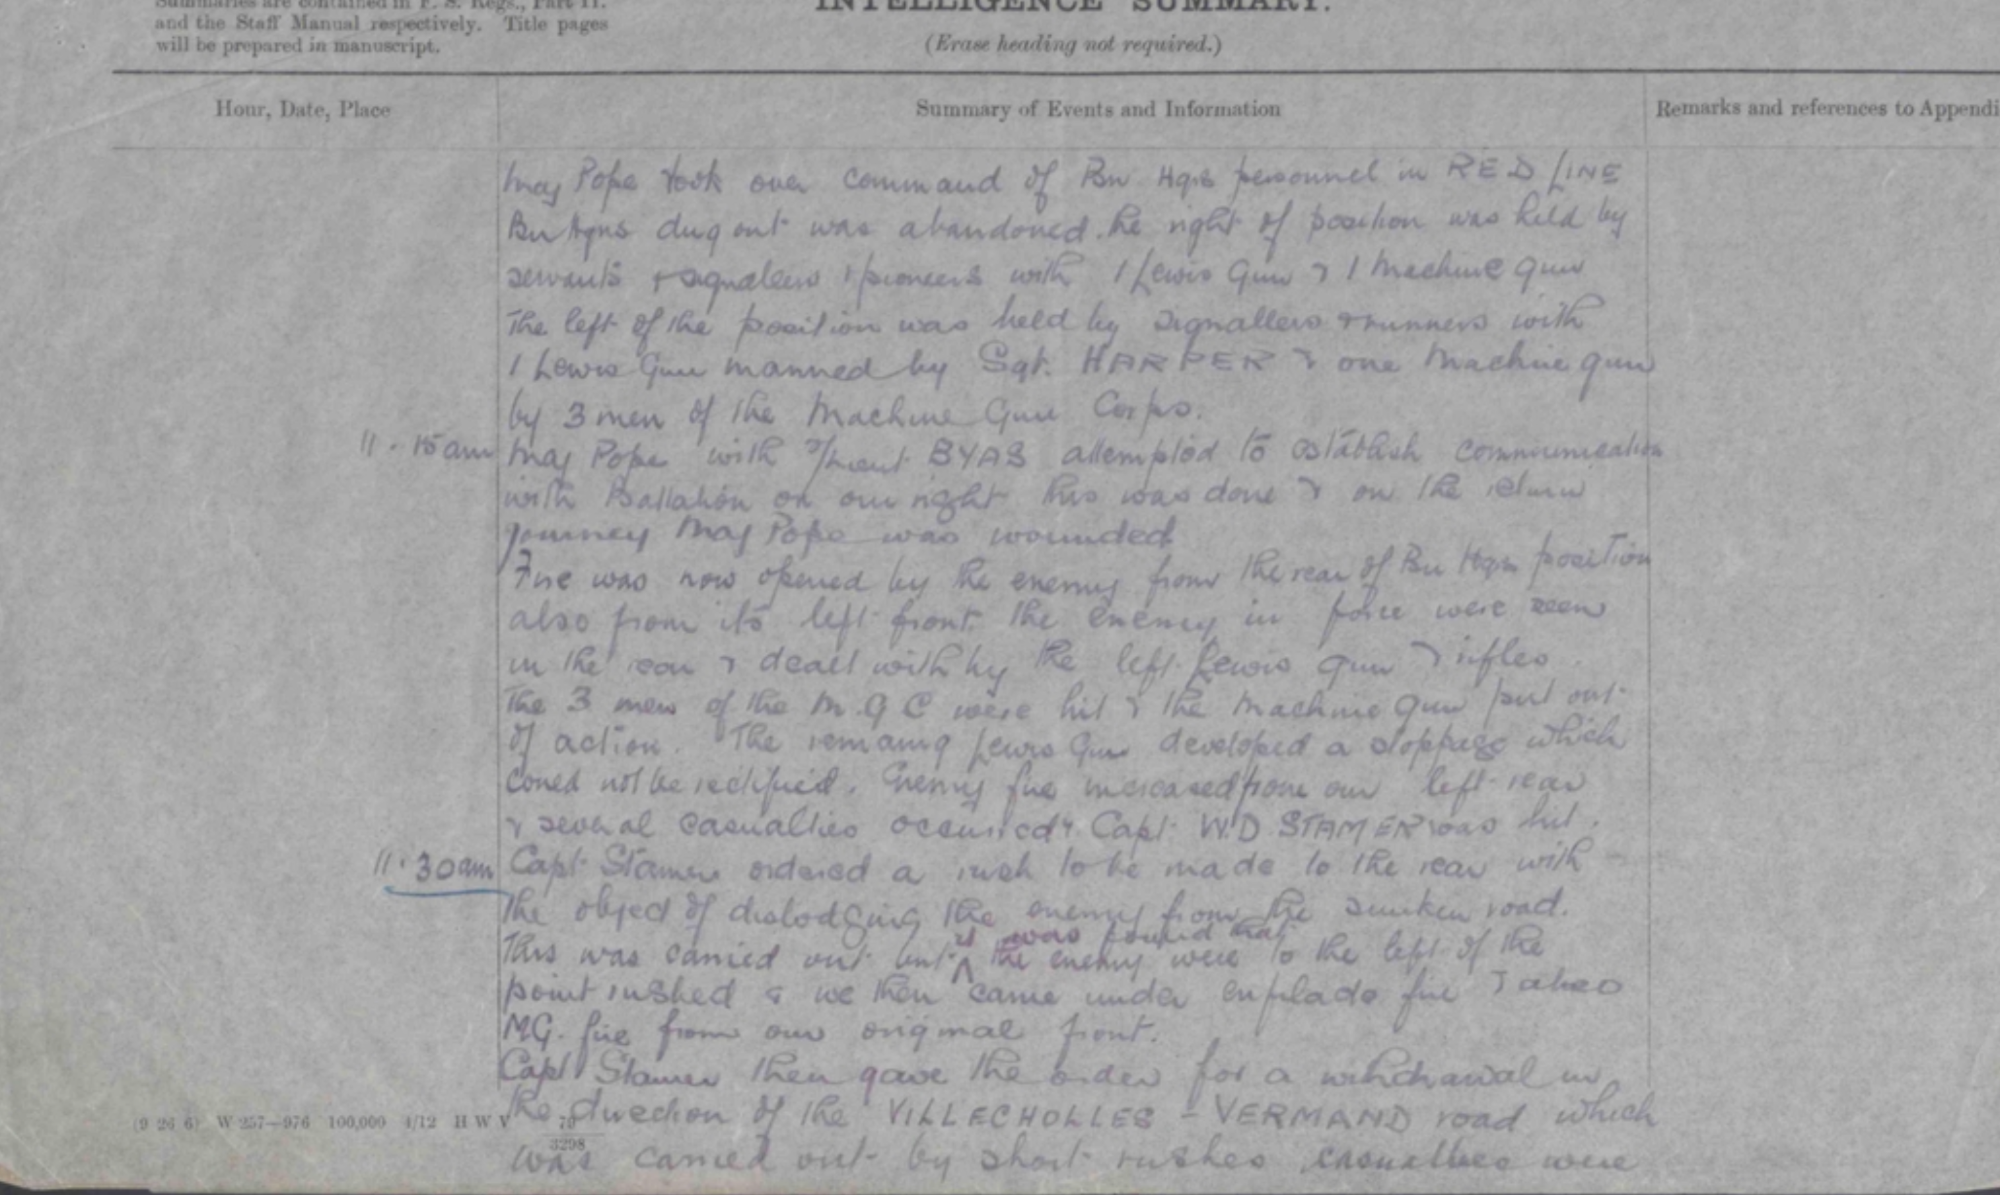 Summaries are contained in F. S. Regs., Part II.
and the Staff Manual respectively. Title pages
will be prepared in manuscript.
INTELLIGENCE SUMMARY.
(Erase heading not required.)
Hour, Date, Place
Summary of Events and Information
Remarks and references to Appendi
Maj Pope took over command of Bn Hqrs personnel in RED LINE
Bn Hqrs dug out was abandoned. The right of position was held by
servants & signallers & pioneers with 1 Lewis Gun & 1 Machine gun
The left of the position was held by signallers & runners with
1 Lewis Gun manned by Sgt. HARPER & one Machine gun
by 3 men of the Machine Gun Corps.
11.15am Maj Pope with 2/Lieut BYAS attempted to establish communication
with Battalion on our right this was done & on the return
journey Maj Pope was wounded
Fire was now opened by the enemy from the rear of Bn Hqrs position
also from its left front. The enemy in force were seen
in the rear & dealt with by the left Lewis gun & rifles.
The 3 men of the M.G C were hit & the Machine Gun put out
of action. The remaing Lewis Gun developed a stoppage which
could not be rectified. Enemy fire increased from our left rear
& several casualties occurred & Capt W.D STAMER was hit.
11.30am Capt Stamer ordered a rush to be made to the rear with
the object of dislodging the enemy from the sunken road.
it was found that
This was carried out but ^ the enemy were to the left of the
point rushed & we then came under enfilade fire & also
MG. fire from our original front.
Capt Stamer then gave the order for a withdrawal in
the direction of the VILLECHOLLES - VERMAND road which
(9 26 6) W 257—976 100,000 4/12 H W V 79
3298
was carried out by short rushes casualties were